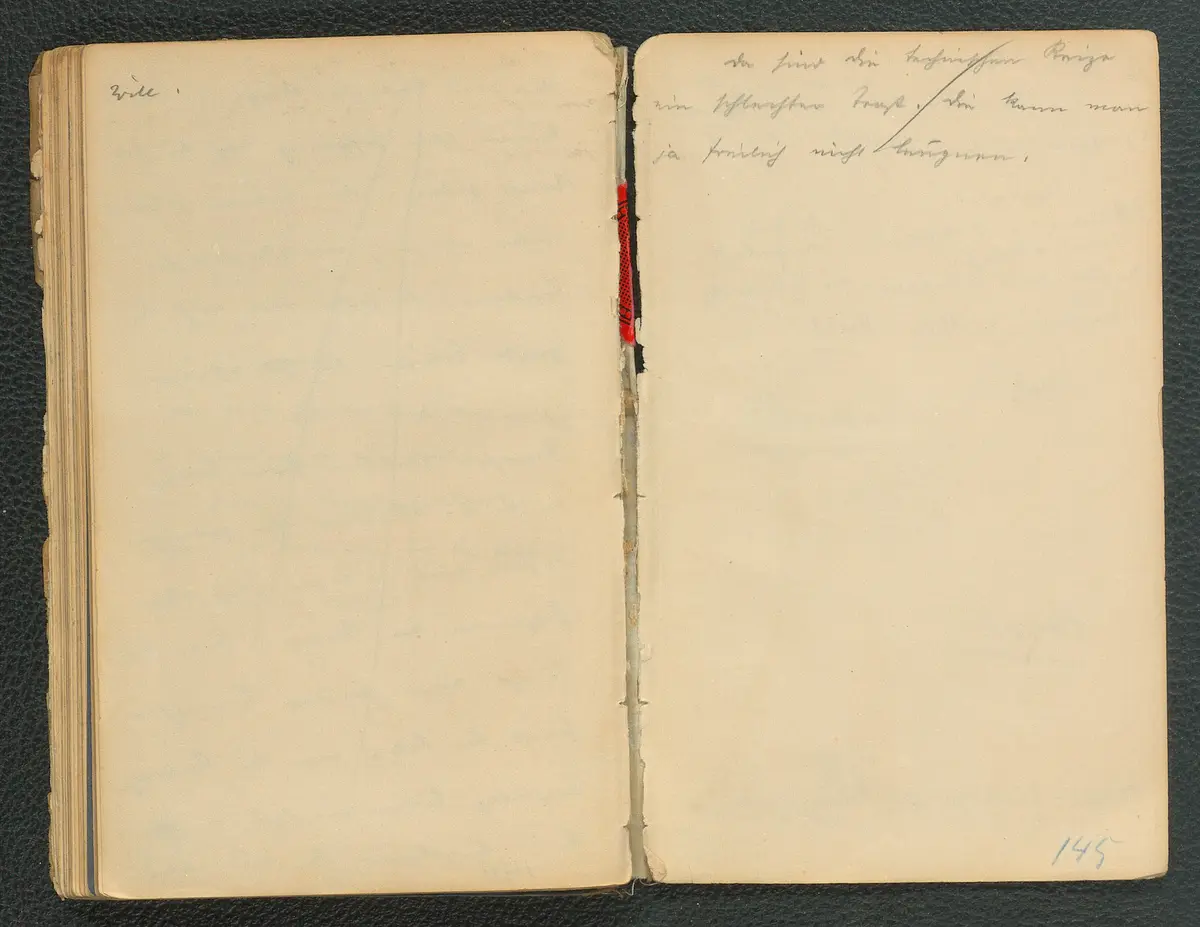 will.
Da sind die technischen Reize
ein schlechter Trost. Die kann man
ja freilich nicht leugnen.
145